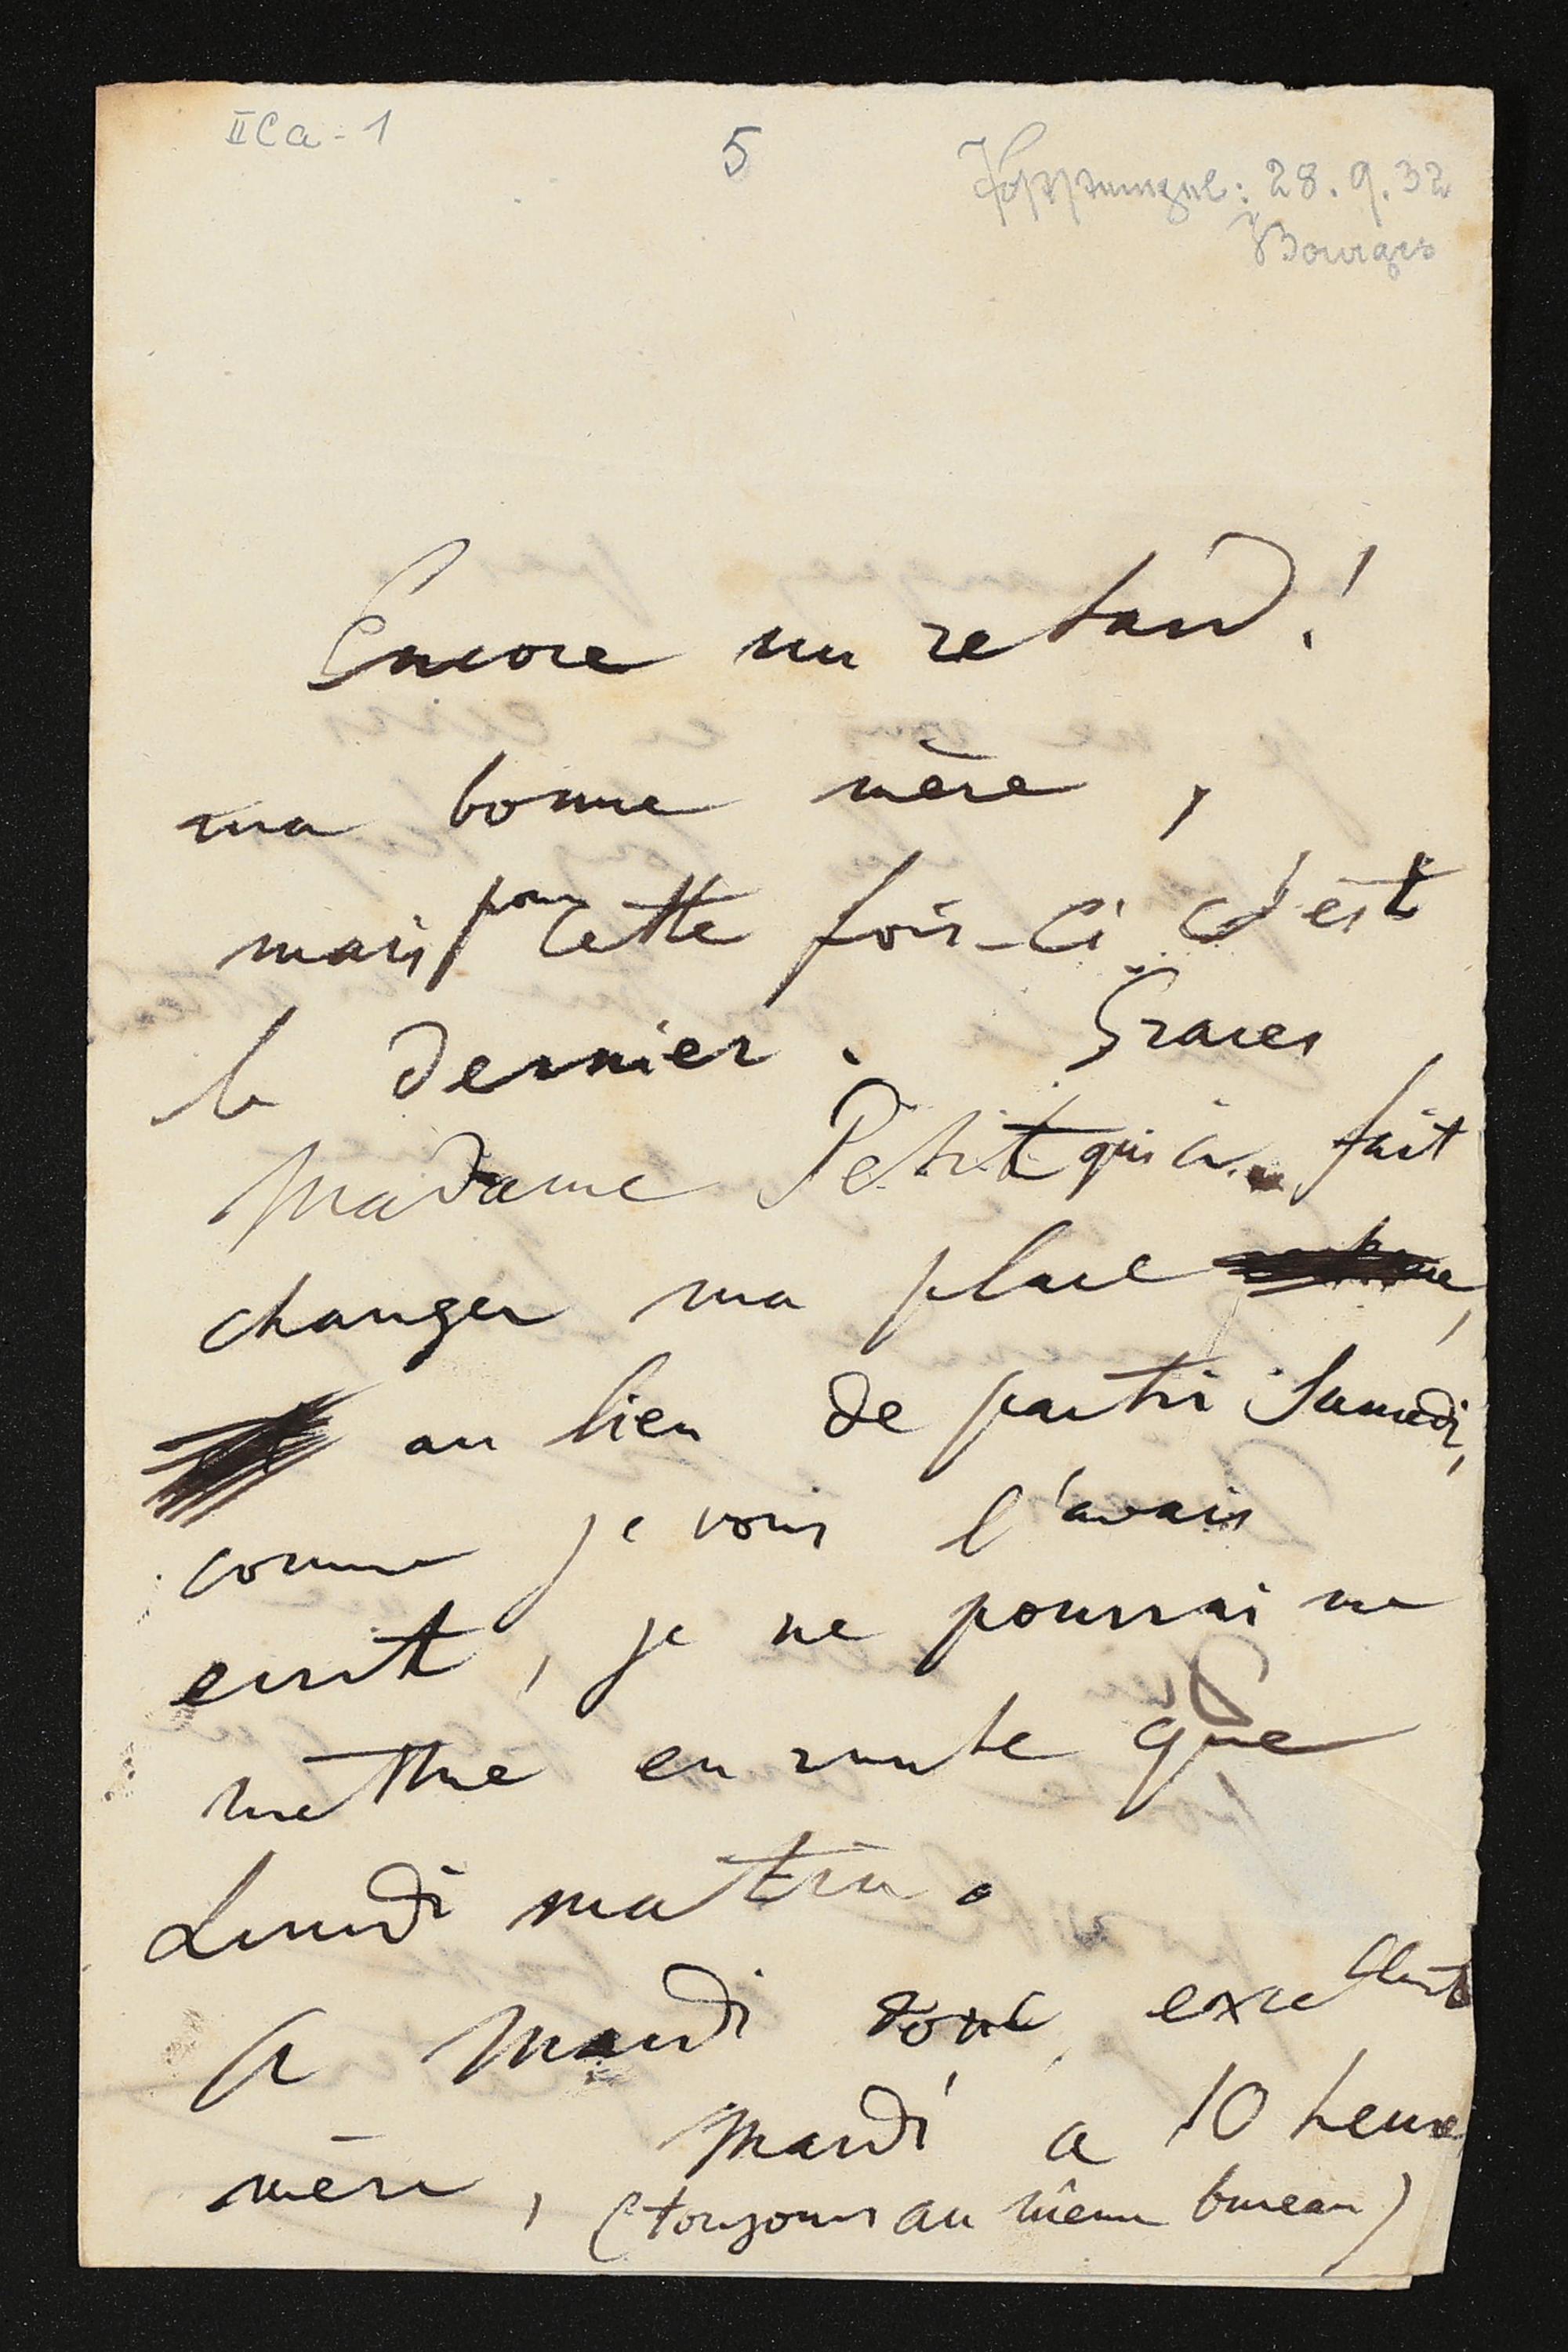 IICa-1
5
Poststempel: 28.9.32
Bourges
Encore un retard!
ma bonne mère,
mais pour cette fois-ci c'est
le dernier. Graces
Madame Petit qui a fait
changer ma place
au lieu de partir Samedi,
comme je vous l'avais
ecrit, je ne pourrai me
mettre en route que
Lundi matin.
A Mardi donc, excellente
mère, Mardi a 10 heures
(toujours au même bureau)